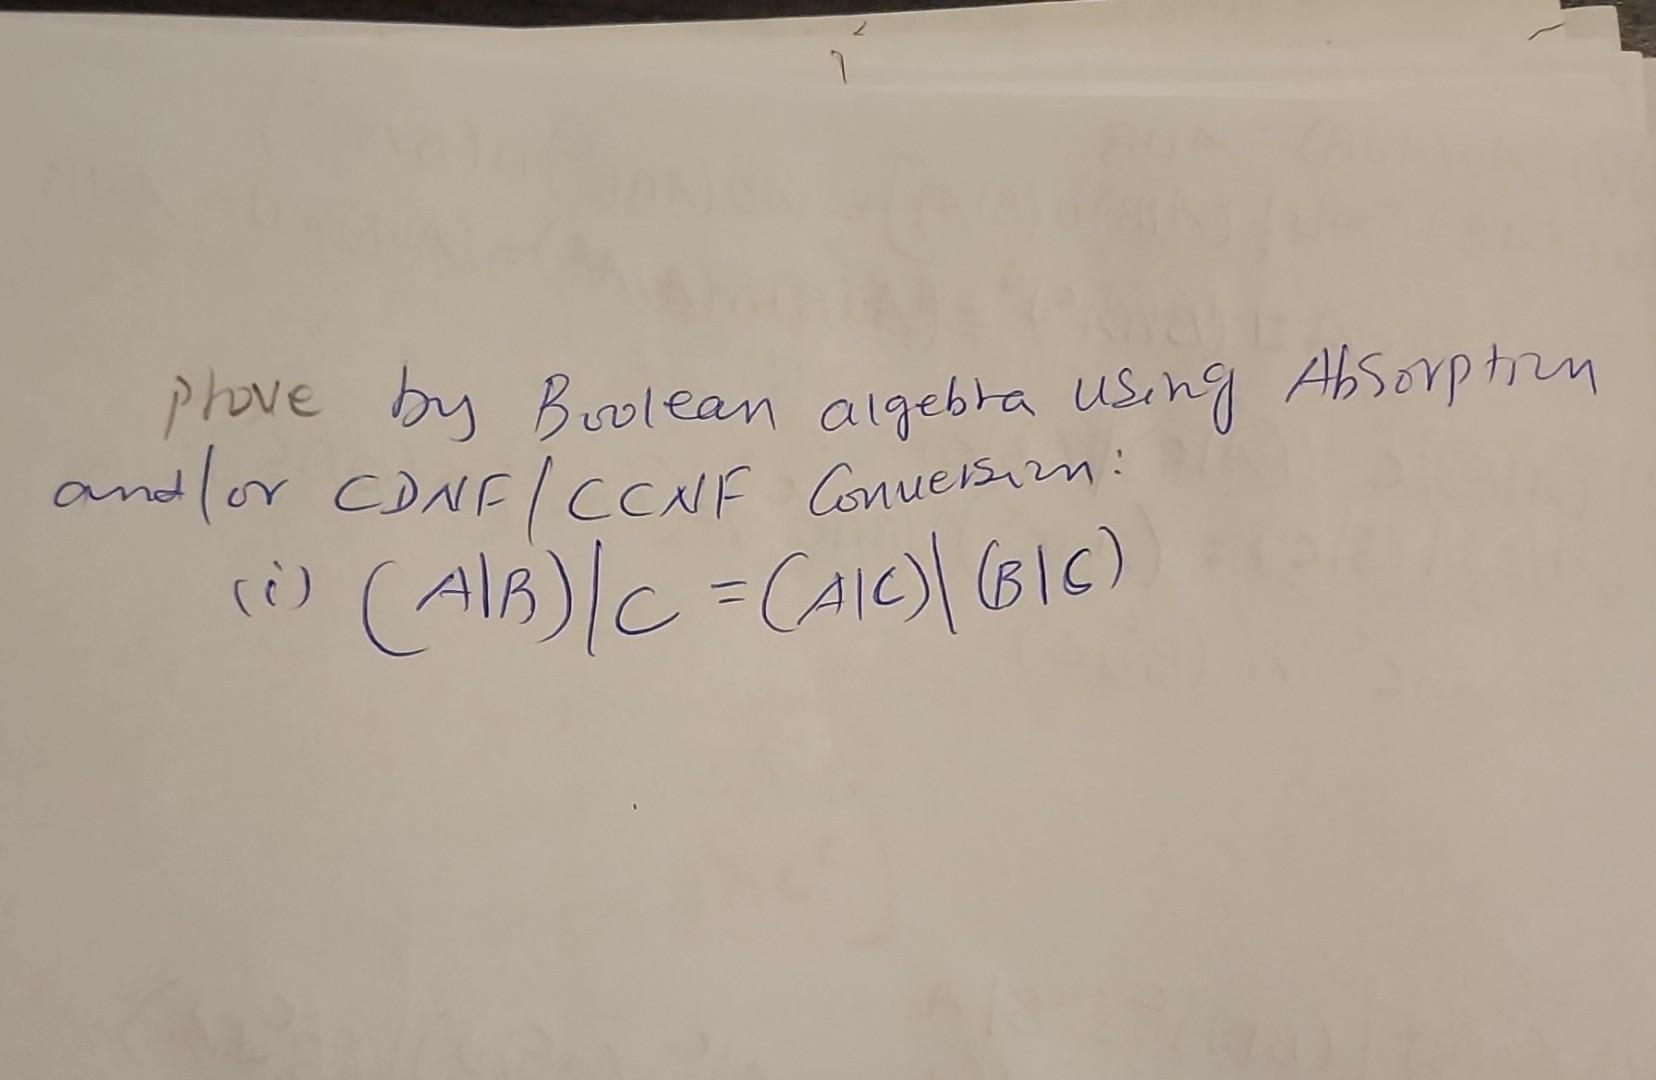 prove by Boolean algebra using Absorption
and/or CDNF/CCNF Conversion:
(i) (A\B)\C = (A\C)\(B\C)